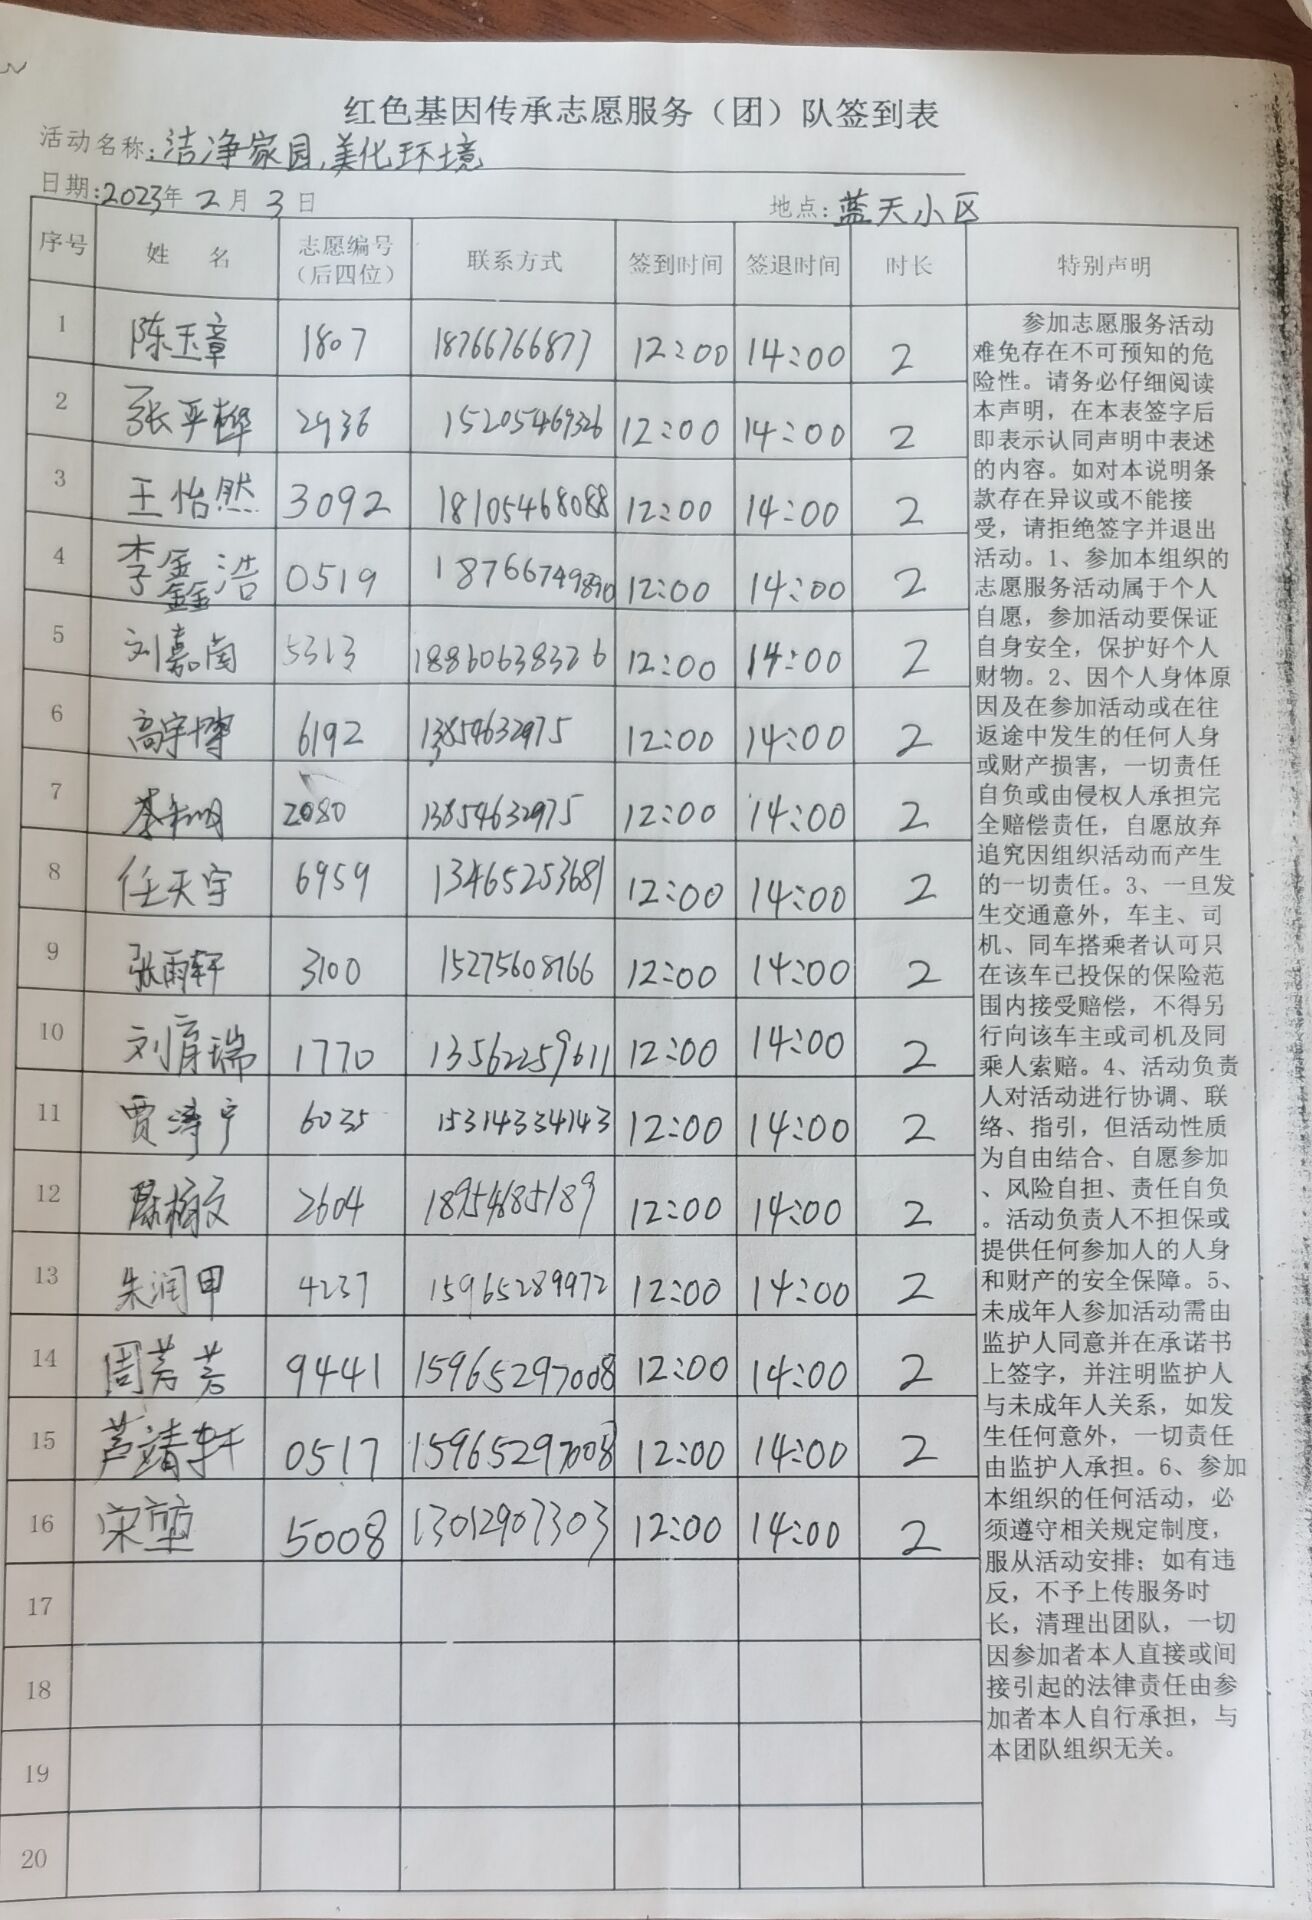 红色基因传承志愿服务（团）队签到表
活动名称:洁净家园,美化环境
日期:2023年2月3日 地点:蓝天小区
序号 姓名 志愿编号（后四位） 联系方式 签到时间 签退时间 时长 特别声明
1 陈玉章 1807 18766766877 12:00 14:00 2
2 张平桦 2936 15205469326 12:00 14:00 2
3 王怡然 3092 18105468088 12:00 14:00 2
4 李鑫浩 0519 18766749890 12:00 14:00 2
5 刘嘉南 5313 18860638326 12:00 14:00 2
6 高宇博 6192 13854632975 12:00 14:00 2
7 2080 13854632975 12:00 14:00 2
8 任天宇 6959 13465253681 12:00 14:00 2
9 张雨轩 3100 15275608766 12:00 14:00 2
10 刘育瑞 1770 13562259611 12:00 14:00 2
11 贾涛宁 6035 15314334143 12:00 14:00 2
12 2604 18954685189 12:00 14:00 2
13 朱润甲 4237 15965289972 12:00 14:00 2
14 周芳芳 9441 15965297008 12:00 14:00 2
15 芦靖轩 0517 15965297008 12:00 14:00 2
16 宋堃 5008 13012907303 12:00 14:00 2
17
18
19
20
参加志愿服务活动
难免存在不可预知的危
险性。请务必仔细阅读
本声明，在本表签字后
即表示认同声明中表述
的内容。如对本说明条
款存在异议或不能接
受，请拒绝签字并退出
活动。1、参加本组织的
志愿服务活动属于个人
自愿，参加活动要保证
自身安全，保护好个人
财物。2、因个人身体原
因及在参加活动或在往
返途中发生的任何人身
或财产损害，一切责任
自负或由侵权人承担完
全赔偿责任，自愿放弃
追究因组织活动而产生
的一切责任。3、一旦发
生交通意外，车主、司
机、同车搭乘者认可只
在该车已投保的保险范
围内接受赔偿，不得另
行向该车主或司机及同
乘人索赔。4、活动负责
人对活动进行协调、联
络、指引，但活动性质
为自由结合、自愿参加
、风险自担、责任自负
。活动负责人不担保或
提供任何参加人的人身
和财产的安全保障。5、
未成年人参加活动需由
监护人同意并在承诺书
上签字，并注明监护人
与未成年人关系，如发
生任何意外，一切责任
由监护人承担。6、参加
本组织的任何活动，必
须遵守相关规定制度，
服从活动安排；如有违
反，不予上传服务时
长，清理出团队，一切
因参加者本人直接或间
接引起的法律责任由参
加者本人自行承担，与
本团队组织无关。